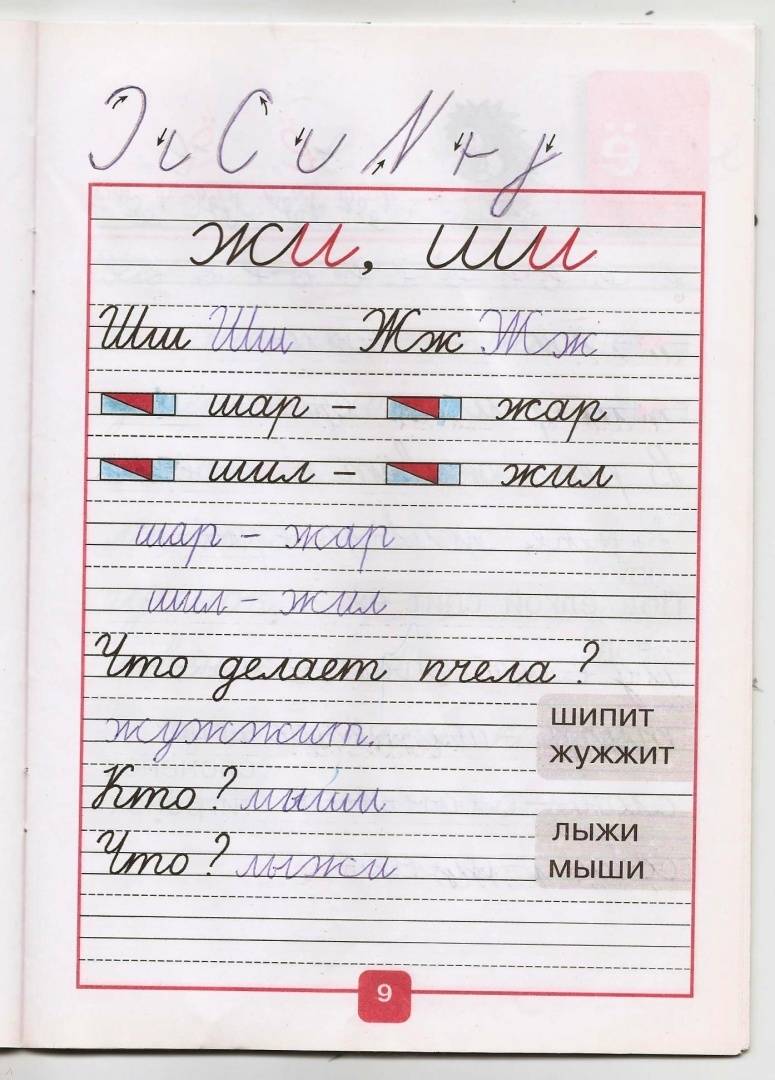 жи, ши
Шш Шш Жж Жж
шар – жар
шил – жил
шар – жар
шил – жил
Что делает пчела?
жужжит.
шипит
жужжит
Кто? мыши
Что? лыжи
лыжи
мыши
9